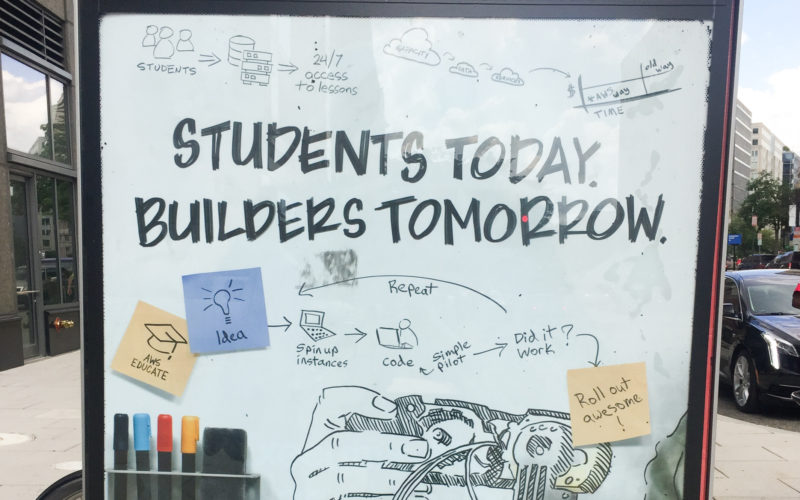 STUDENTS
24/7
access
to lessons
CAPACITY
DATA
$
AWS way
old way
TIME
STUDENTS TODAY.
BUILDERS TOMORROW.
Repeat
Idea
AWS
EDUCATE
Spin up
instances
code
Simple
pilot
Did it
Work?
Roll out
awesome
!